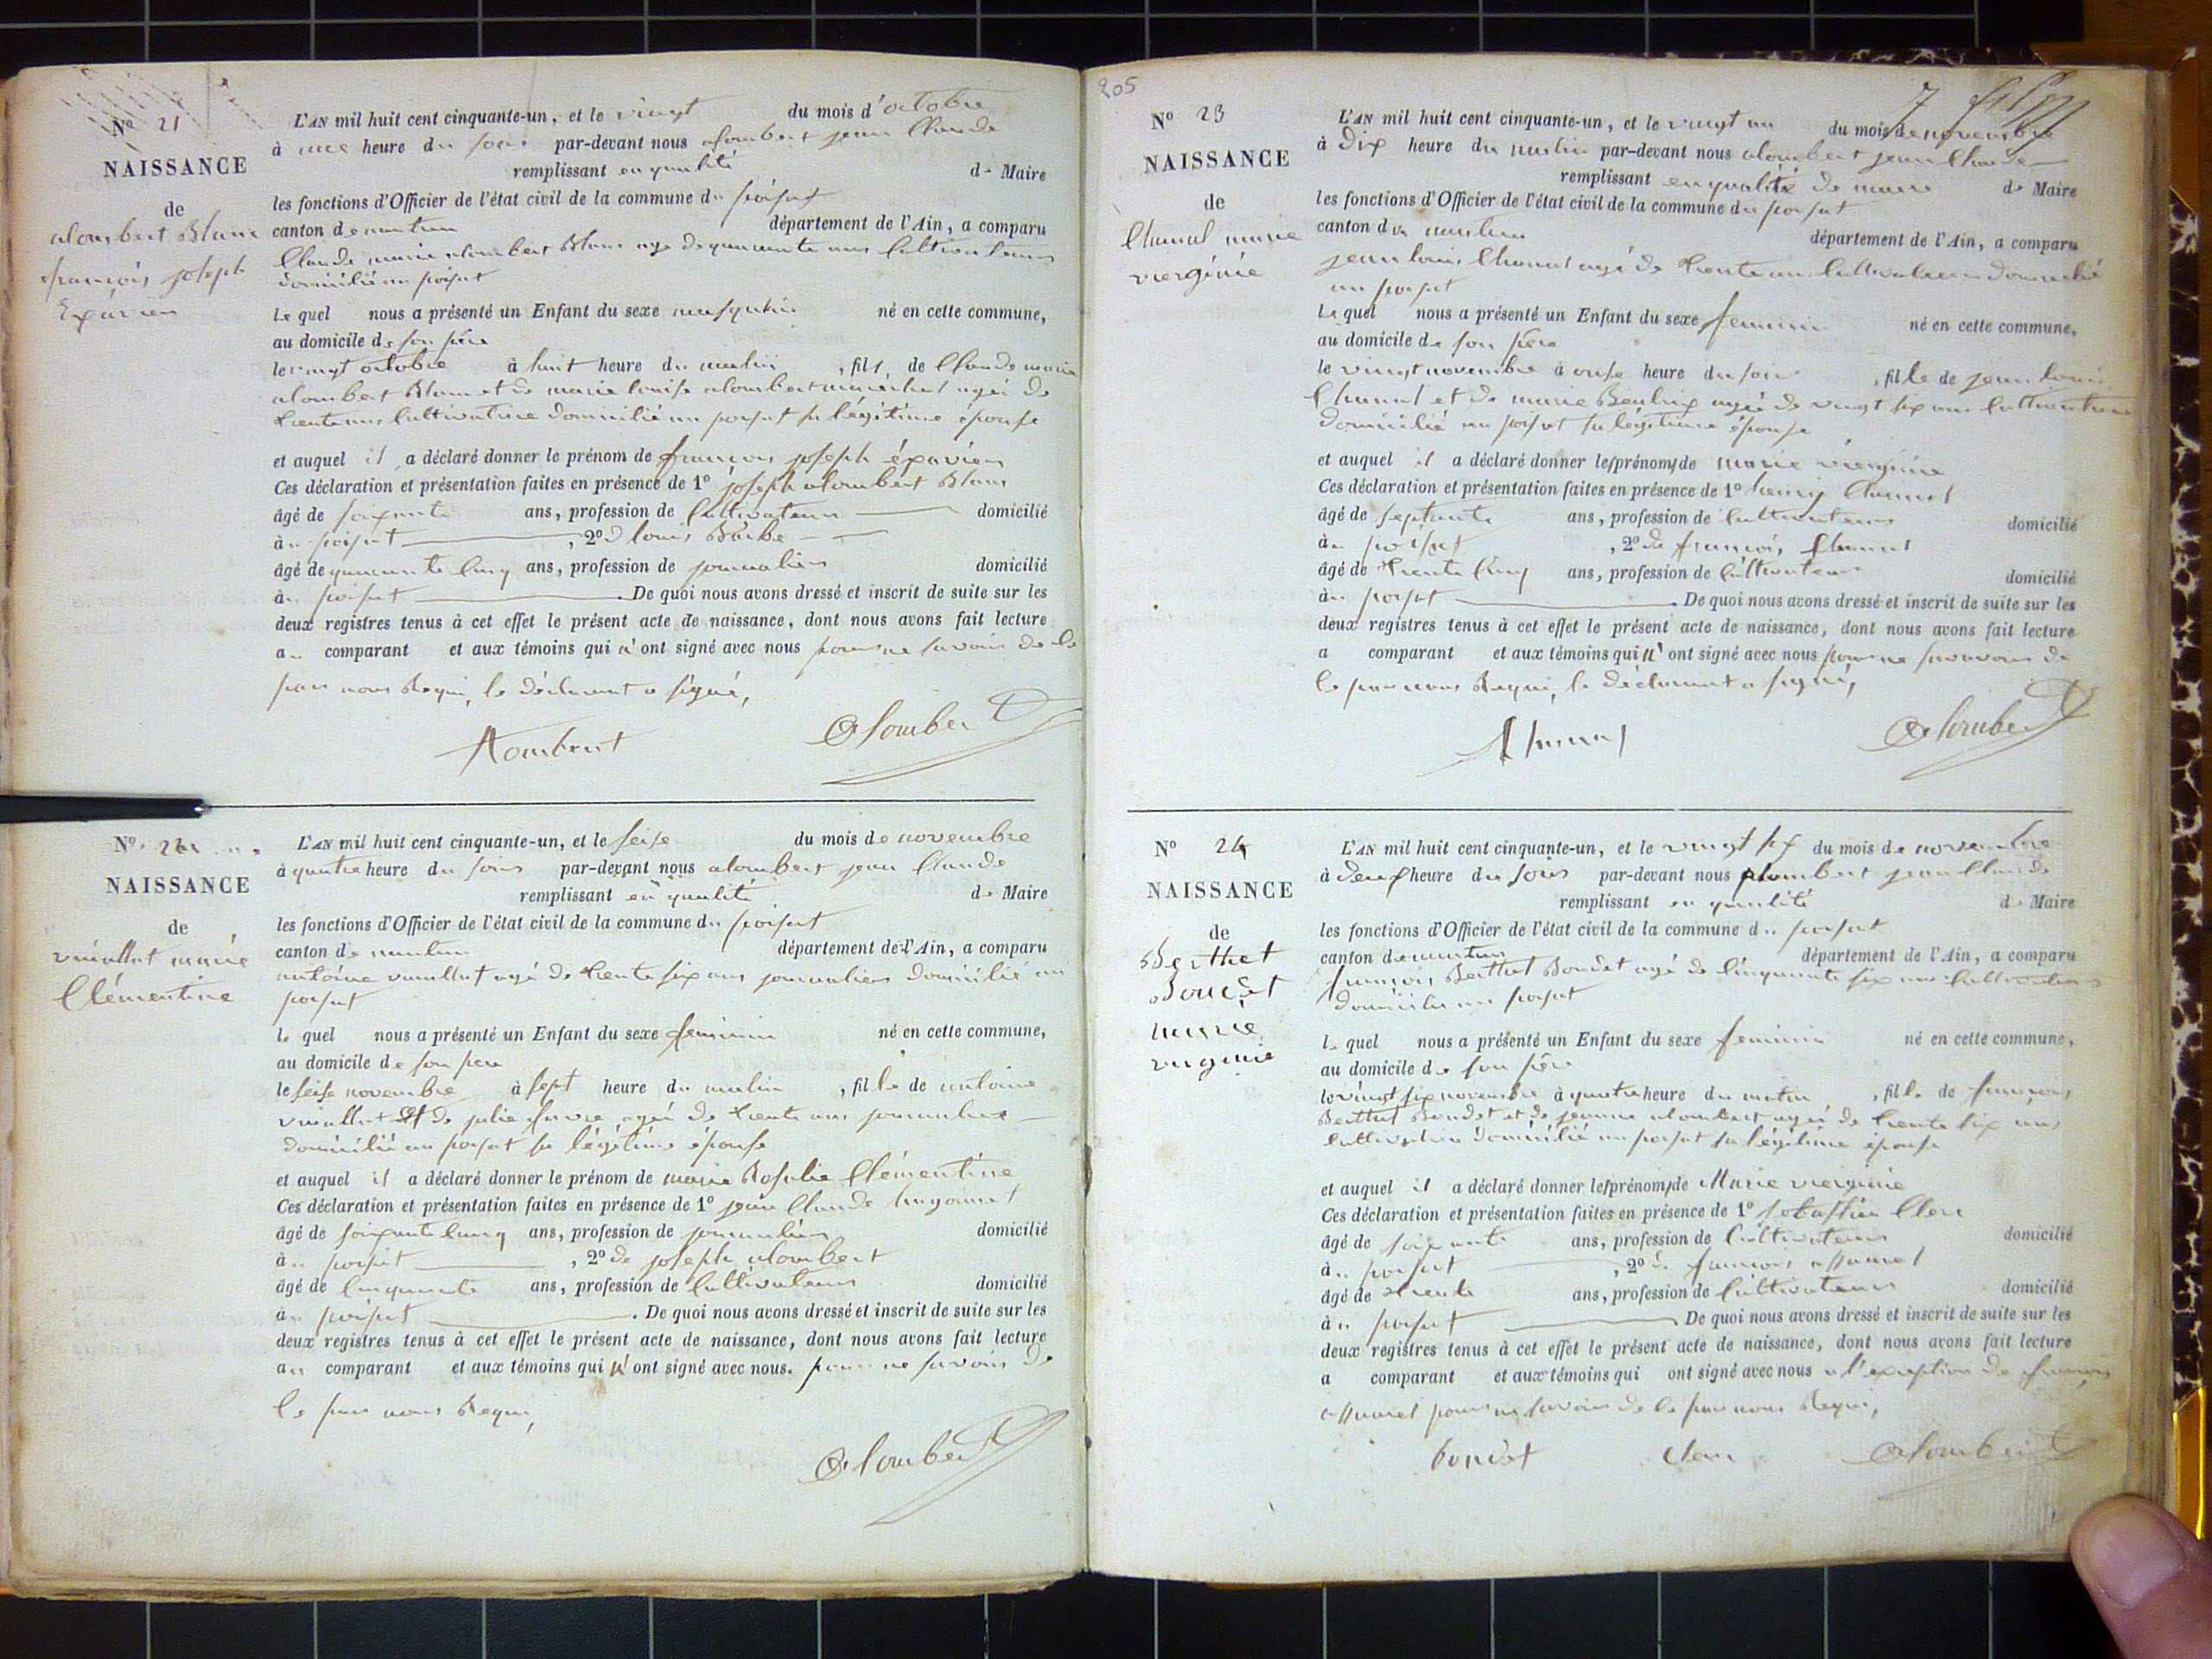 N° 21
NAISSANCE
de
alombert Blanc
françois joseph
L'AN mil huit cent cinquante-un, et le vingt du mois d'octobre
à une heure du soir par-devant nous alombert jean Claude
remplissant en qualité de Maire
les fonctions d'Officier de l'état civil de la commune du poisat
canton de nantua département de l'Ain, a comparu
Claude marie alombert Blanc agé de quarante ans Cultivateur
domicilié au poisat
Le quel nous a présenté un Enfant du sexe masqulin né en cette commune,
au domicile de son père
le vingt octobre à huit heure du matin , fils de Claude marie
alombert Blanc et de marie louise alombert maréchal agée de
trente ans Cultivatrice domicilié au poisat sa légitime épouse
et auquel il a déclaré donner le prénom de françois joseph
Ces déclaration et présentation faites en présence de 1° joseph alombert Blanc
âgé de soixante ans, profession de Cultivateur domicilié
au poisat , 2° d louis Barbe
âgé de quarante Cinq ans, profession de journalier domicilié
au poisat . De quoi nous avons dressé et inscrit de suite sur les
deux registres tenus à cet effet le présent acte de naissance, dont nous avons fait lecture
au comparant et aux témoins qui n'ont signé avec nous pour ne savoir de le
faire nous Requi, le déclarant a signé,
Alombert Alombert
N° 22
NAISSANCE
de
vuaillat marie
Clémentine
L'AN mil huit cent cinquante-un, et le seise du mois de novembre
à quatre heure du soir par-devant nous alombert jean Claude
remplissant en qualité de Maire
les fonctions d'Officier de l'état civil de la commune du poisat
canton de nantua département de l'Ain, a comparu
antoine vuaillat agé de trente six ans journalier domicilié au
poisat
le quel nous a présenté un Enfant du sexe feminin né en cette commune,
au domicile de son père
le seise novembre à sept heure du matin , fille de antoine
vuaillat et de julie favre agée de trente ans journalière
domicilié au poisat sa légitime épouse
et auquel il a déclaré donner le prénom de marie Rosalie Clémentine
Ces déclaration et présentation faites en présence de 1° jean Claude
âgé de soixante cinq ans, profession de journalier domicilié
au poisat , 2° de joseph alombert
âgé de Cinquante ans, profession de Cultivateur domicilié
au poisat . De quoi nous avons dressé et inscrit de suite sur les
deux registres tenus à cet effet le présent acte de naissance, dont nous avons fait lecture
au comparant et aux témoins qui n'ont signé avec nous. pour ne savoir de
le faire nous Requi,
Alombert
205
N° 23
NAISSANCE
de
Chanal marie
viergine
7
L'AN mil huit cent cinquante-un, et le vingt un du mois de novembre
à Dix heure du matin par-devant nous alombert jean Claude
remplissant en qualité de maire de Maire
les fonctions d'Officier de l'état civil de la commune du poisat
canton de département de l'Ain, a comparu
jean louis Chanal agé de trente ans Cultivateur domicilié
au poisat
Le quel nous a présenté un Enfant du sexe feminin né en cette commune,
au domicile de son père
le vingt novembre à onse heure du soir , fille de jean louis
Chanal et de marie agée de vingt six ans Cultivatrice
domicilié au poisat sa légitime épouse
et auquel il a déclaré donner les prénoms de marie viergine
Ces déclaration et présentation faites en présence de 1° Chanal
âgé de septante ans, profession de Cultivateur domicilié
au poisat , 2° de françois Chanal
âgé de trente Cinq ans, profession de Cultivateur domicilié
au poisat . De quoi nous avons dressé et inscrit de suite sur les
deux registres tenus à cet effet le présent acte de naissance, dont nous avons fait lecture
a comparant et aux témoins qui n'ont signé avec nous pour ne savoir de
le faire nous Requi, le déclarant a signé,
Chanal Alombert
N° 24
NAISSANCE
de
Berthet
Bondet
marie
virginie
L'AN mil huit cent cinquante-un, et le vingt six du mois de novembre
à deux heure du soir par-devant nous alombert jean Claude
remplissant en qualité de Maire
les fonctions d'Officier de l'état civil de la commune du poisat
canton de nantua département de l'Ain, a comparu
françois Berthet Bondet agé de Cinquante six ans Cultivateur
domicilié au poisat
le quel nous a présenté un Enfant du sexe feminin né en cette commune,
au domicile de son père
le vingt six novembre à quatre heure du matin , fille de françois
Berthet Bondet et de jeanne alombert agée de trente six ans
Cultivatrice domicilié au poisat sa légitime épouse
et auquel il a déclaré donner les prénoms de Marie viergine
Ces déclaration et présentation faites en présence de 1° sebastien Clerc
âgé de soixante ans, profession de Cultivateur domicilié
au poisat , 2° de françois
âgé de trente ans, profession de Cultivateur domicilié
au poisat De quoi nous avons dressé et inscrit de suite sur les
deux registres tenus à cet effet le présent acte de naissance, dont nous avons fait lecture
a comparant et aux témoins qui ont signé avec nous a l'exception de françois
pour ne savoir de le faire nous Requi,
bondet Clerc Alombert